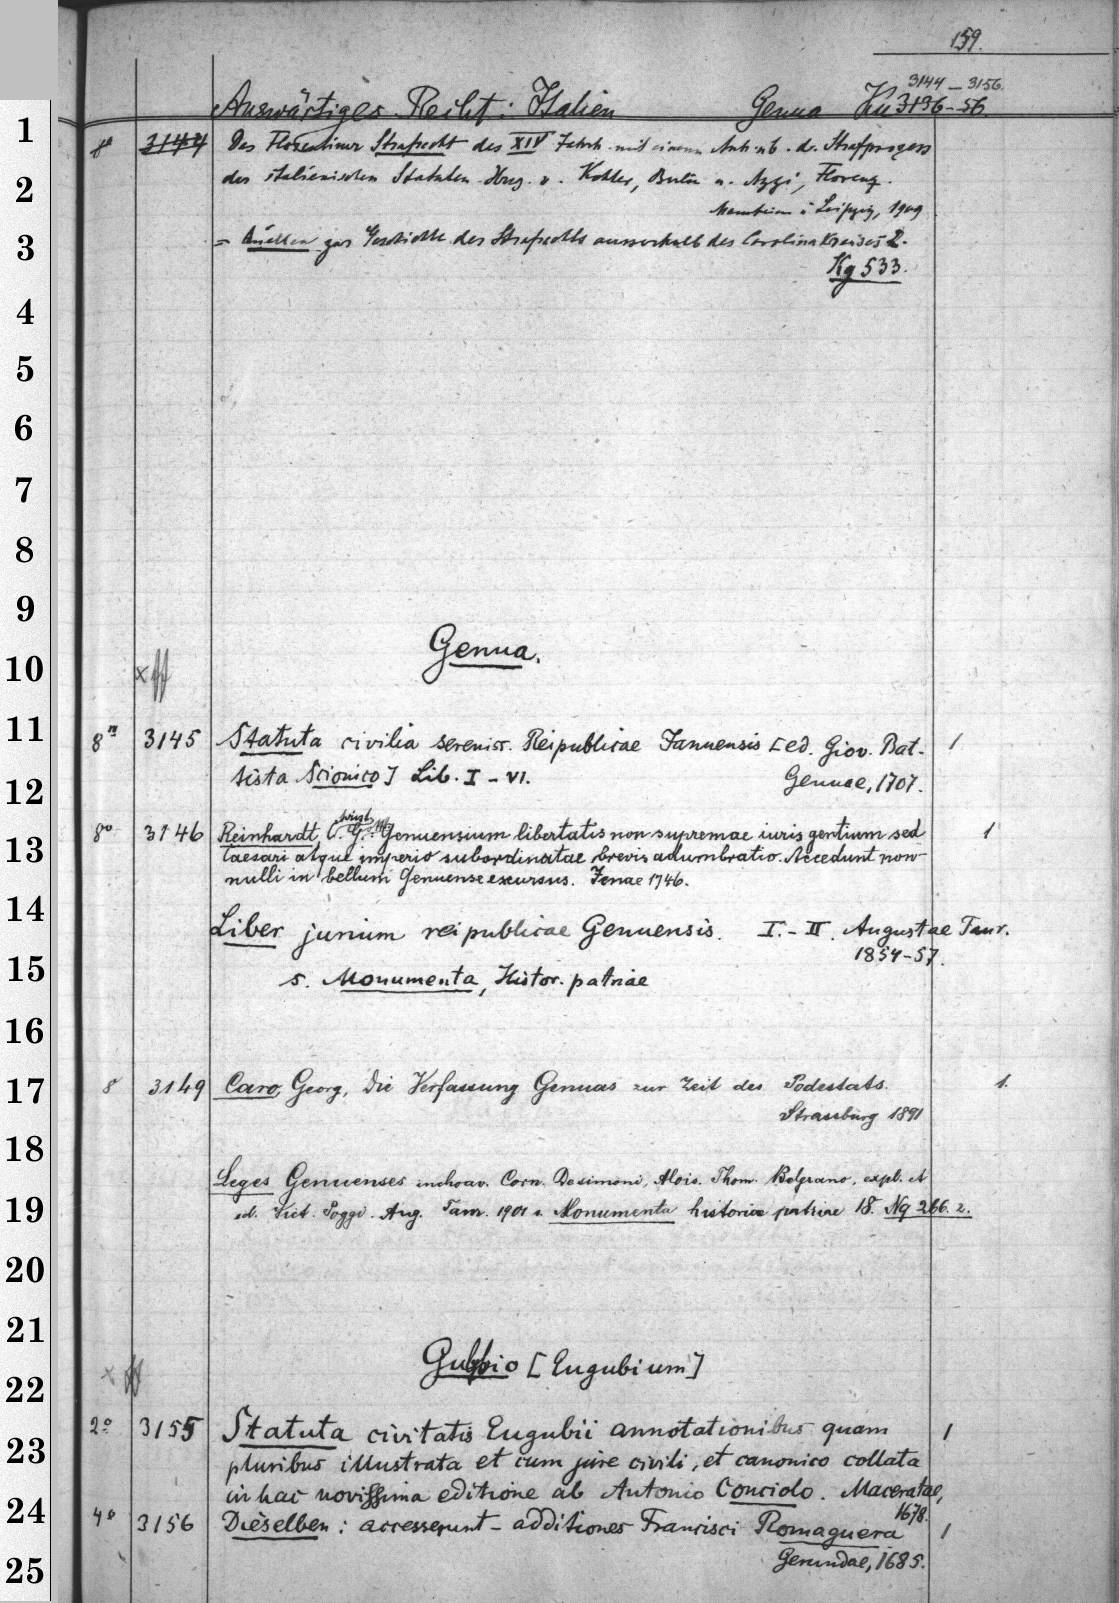 159.
3144 – 3156.
Auswärtiges Recht: Italien Genua Ku 3136-56.
1
8° 3144 Das Florentiner Strafrecht des XIV Jahrh. mit einem Anh. üb. d. Strafprozess
2
der italienischen Statuten. Hrsg. v. Kohler, Berlin u. Azzi, Florenz.
Mannheim & Leipzig, 1909
3
= Quellen zur Geschichte des Strafrechts ausserhalb des Carolina Kreises 2.
Kg 533.
4
5
6
7
8
9
Genua.
10
11
8° 3145 Statuta civilia sereniss. Reipublicae Januensis [ed. Giov. Bat- 1
tista Scionico] Lib. I – VI. Gennae, 1707.
12
8° 3146 Reinhardt, C. G.: Genuensium libertatis non supremae iuris gentium sed 1
13
Caesari atque imperio subordinatae brevis adumbratio. Accedunt non-
nulli in bellum Genuense excursus. Jenae 1746.
14
Liber jurium reipublicae Genuensis. I.-II. Augustae Taur.
1854-57.
15
s. Monumenta, Histor. patriae
16
17
8 3149 Caro, Georg, Die Verfassung Genuas zur Zeit des Podestats. 1.
Strassburg 1891
18
Leges Genuenses inchoav. Corn. Desimoni, Alois. Thom. Belgrano, expl. et
19
ed. Vict. Poggi. Aug. Taur. 1901 s. Monumenta historiae patriae 18. Nq 266. 2.
20
21
Gubbio [Eugubium]
22
2° 3155 Statuta civitatis Eugubii annotationibus quam 1
23
pluribus illustrata et cum jure civili, et canonico collata
in hac novissima editione ab Antonio Conciolo. Maceratae,
1678.
24
4° 3156 Dieselben: accesserunt – additiones Francisci Romaguera 1
Gerundae, 1685.
25